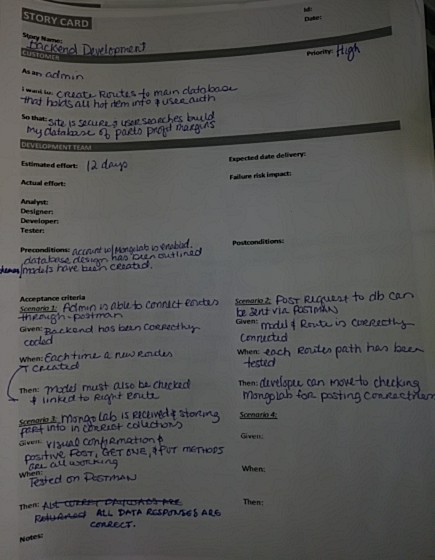 STORY CARD
Id:
Date:
Story Name:
Backend Development
CUSTOMER
Priority: High
As an: admin
I want to: create Routes to main database
that holds all hot item info & user auth
So that: site is secure & user searches build
my database of parts profit margins
DEVELOPMENT TEAM
Estimated effort: 12 days
Expected date delivery:
Actual effort:
Failure risk impact:
Analyst:
Designer:
Developer:
Tester:
Preconditions: account w/ Mongolab is enabled.
database design has been outlined
/models have been created.
Postconditions:
Acceptance criteria
Scenario 1: Admin is able to connect Routes
through postman
Given: Backend has been correctly
coded
When: Each time a new routes
created
Then: Model must also be checked
& linked to Right Route
Scenario 2: POST Request to db can
be sent via POSTMAN
Given: model & Route is correctly
connected
When: each Routes path has been
tested
Then: developer can move to checking
Mongolab for posting correctness
Scenario 3: Mongo Lab is received & storing
part info in correct collections
Given: visual confirmation &
positive POST, GET ONE, & PUT METHODS
are all working
When:
Tested on POSTMAN
Then: ALL CORRECT PAYLOADS ARE
Returned ALL DATA RESPONSES ARE
CORRECT.
Scenario 4:
Given:
When:
Then:
Notes: